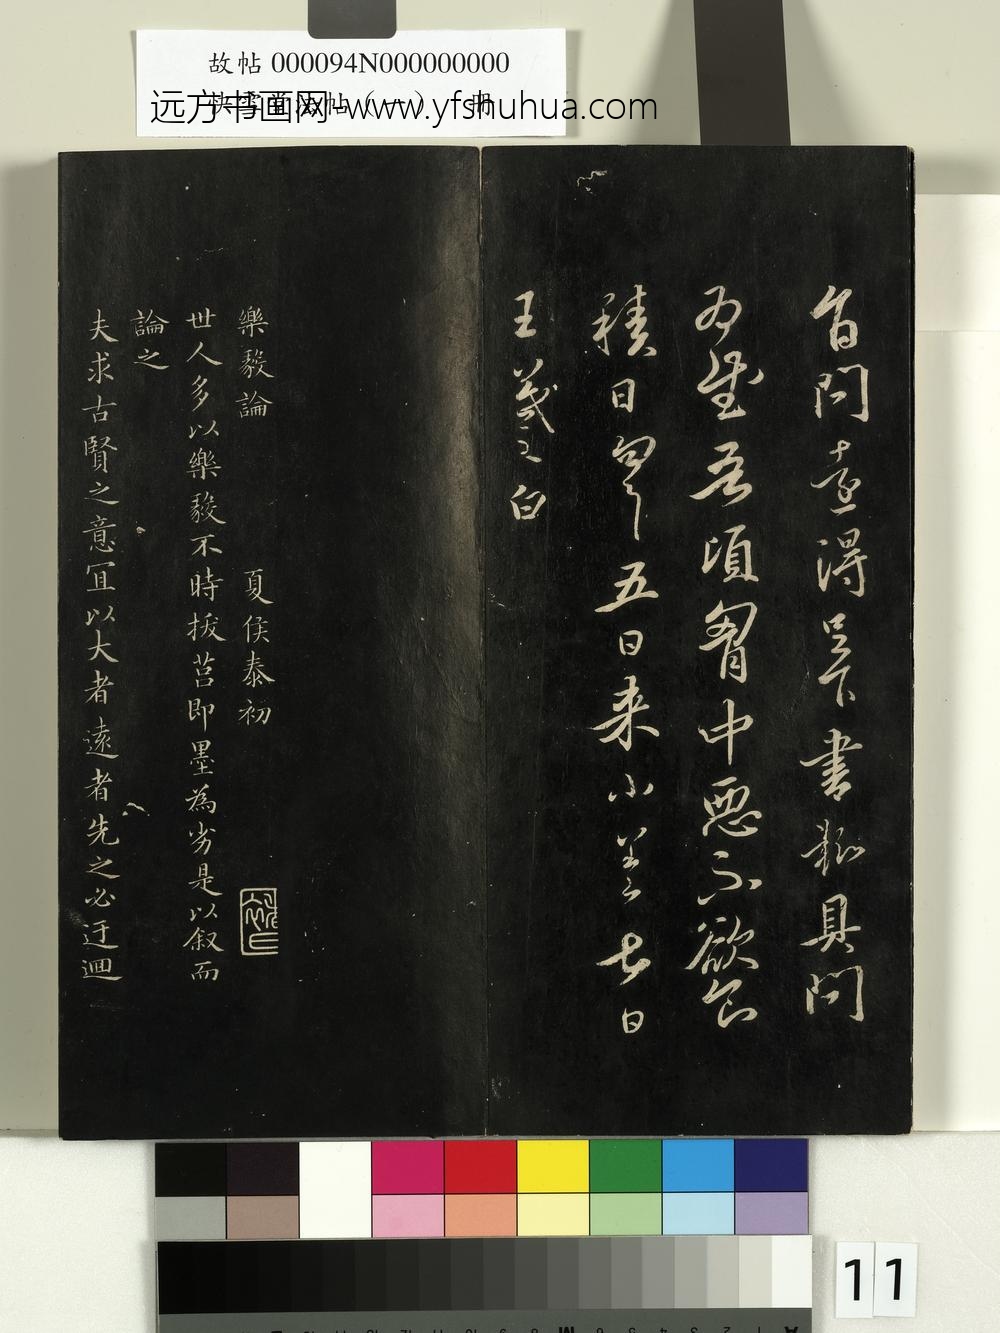 故帖 000094N000000000
远方书画网-www.yfshuhua.com
省問 得吳書輒具問
吾頃胷中惡不欲食
積日 五日来小差 日
王羲之白
樂毅論 夏侯泰初
世人多以樂毅不時拔莒即墨為劣是以叙而
論之
夫求古賢之意宜以大者遠者先之必迂迴
11